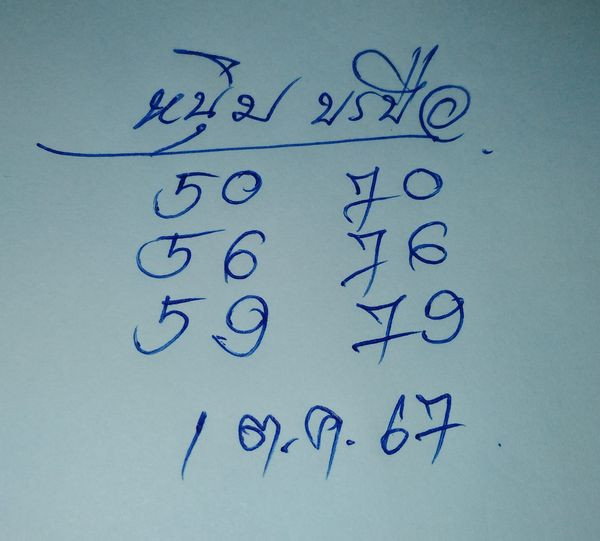 หนุ่ม บรบือ
50 70
56 76
59 79
1 ต.ค. 67